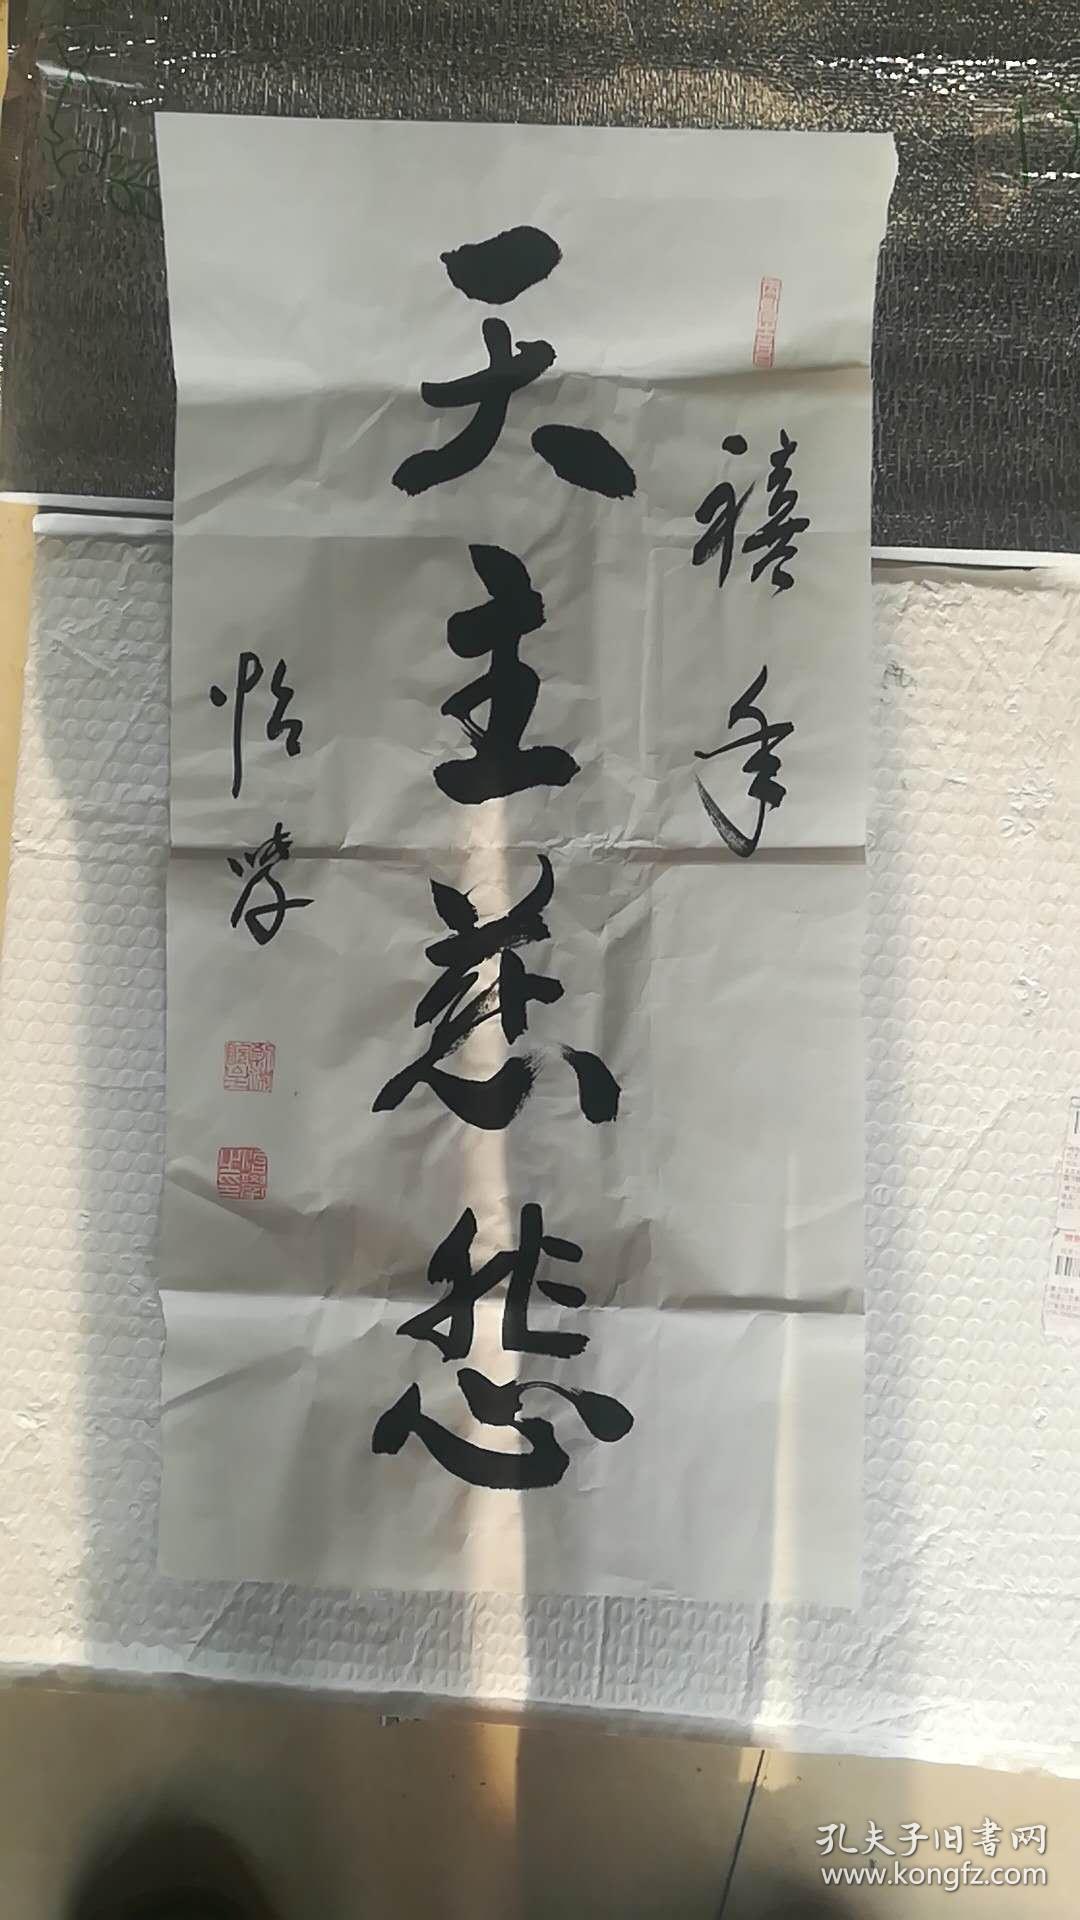 禧年
天主慈悲
怡学
孔夫子旧书网
www.kongfz.com